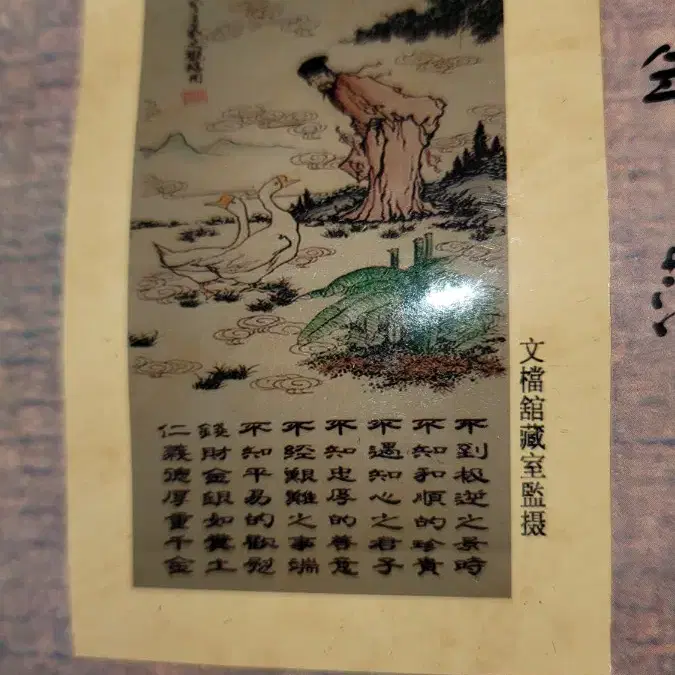 文檔舘藏室監摄
不到极逆之景時
不知和順的珍貴
不遇知心之君子
不知忠厚的善意
不經艱難之事端
不知平易的歡
錢財金銀如糞土
仁義德厚重千金